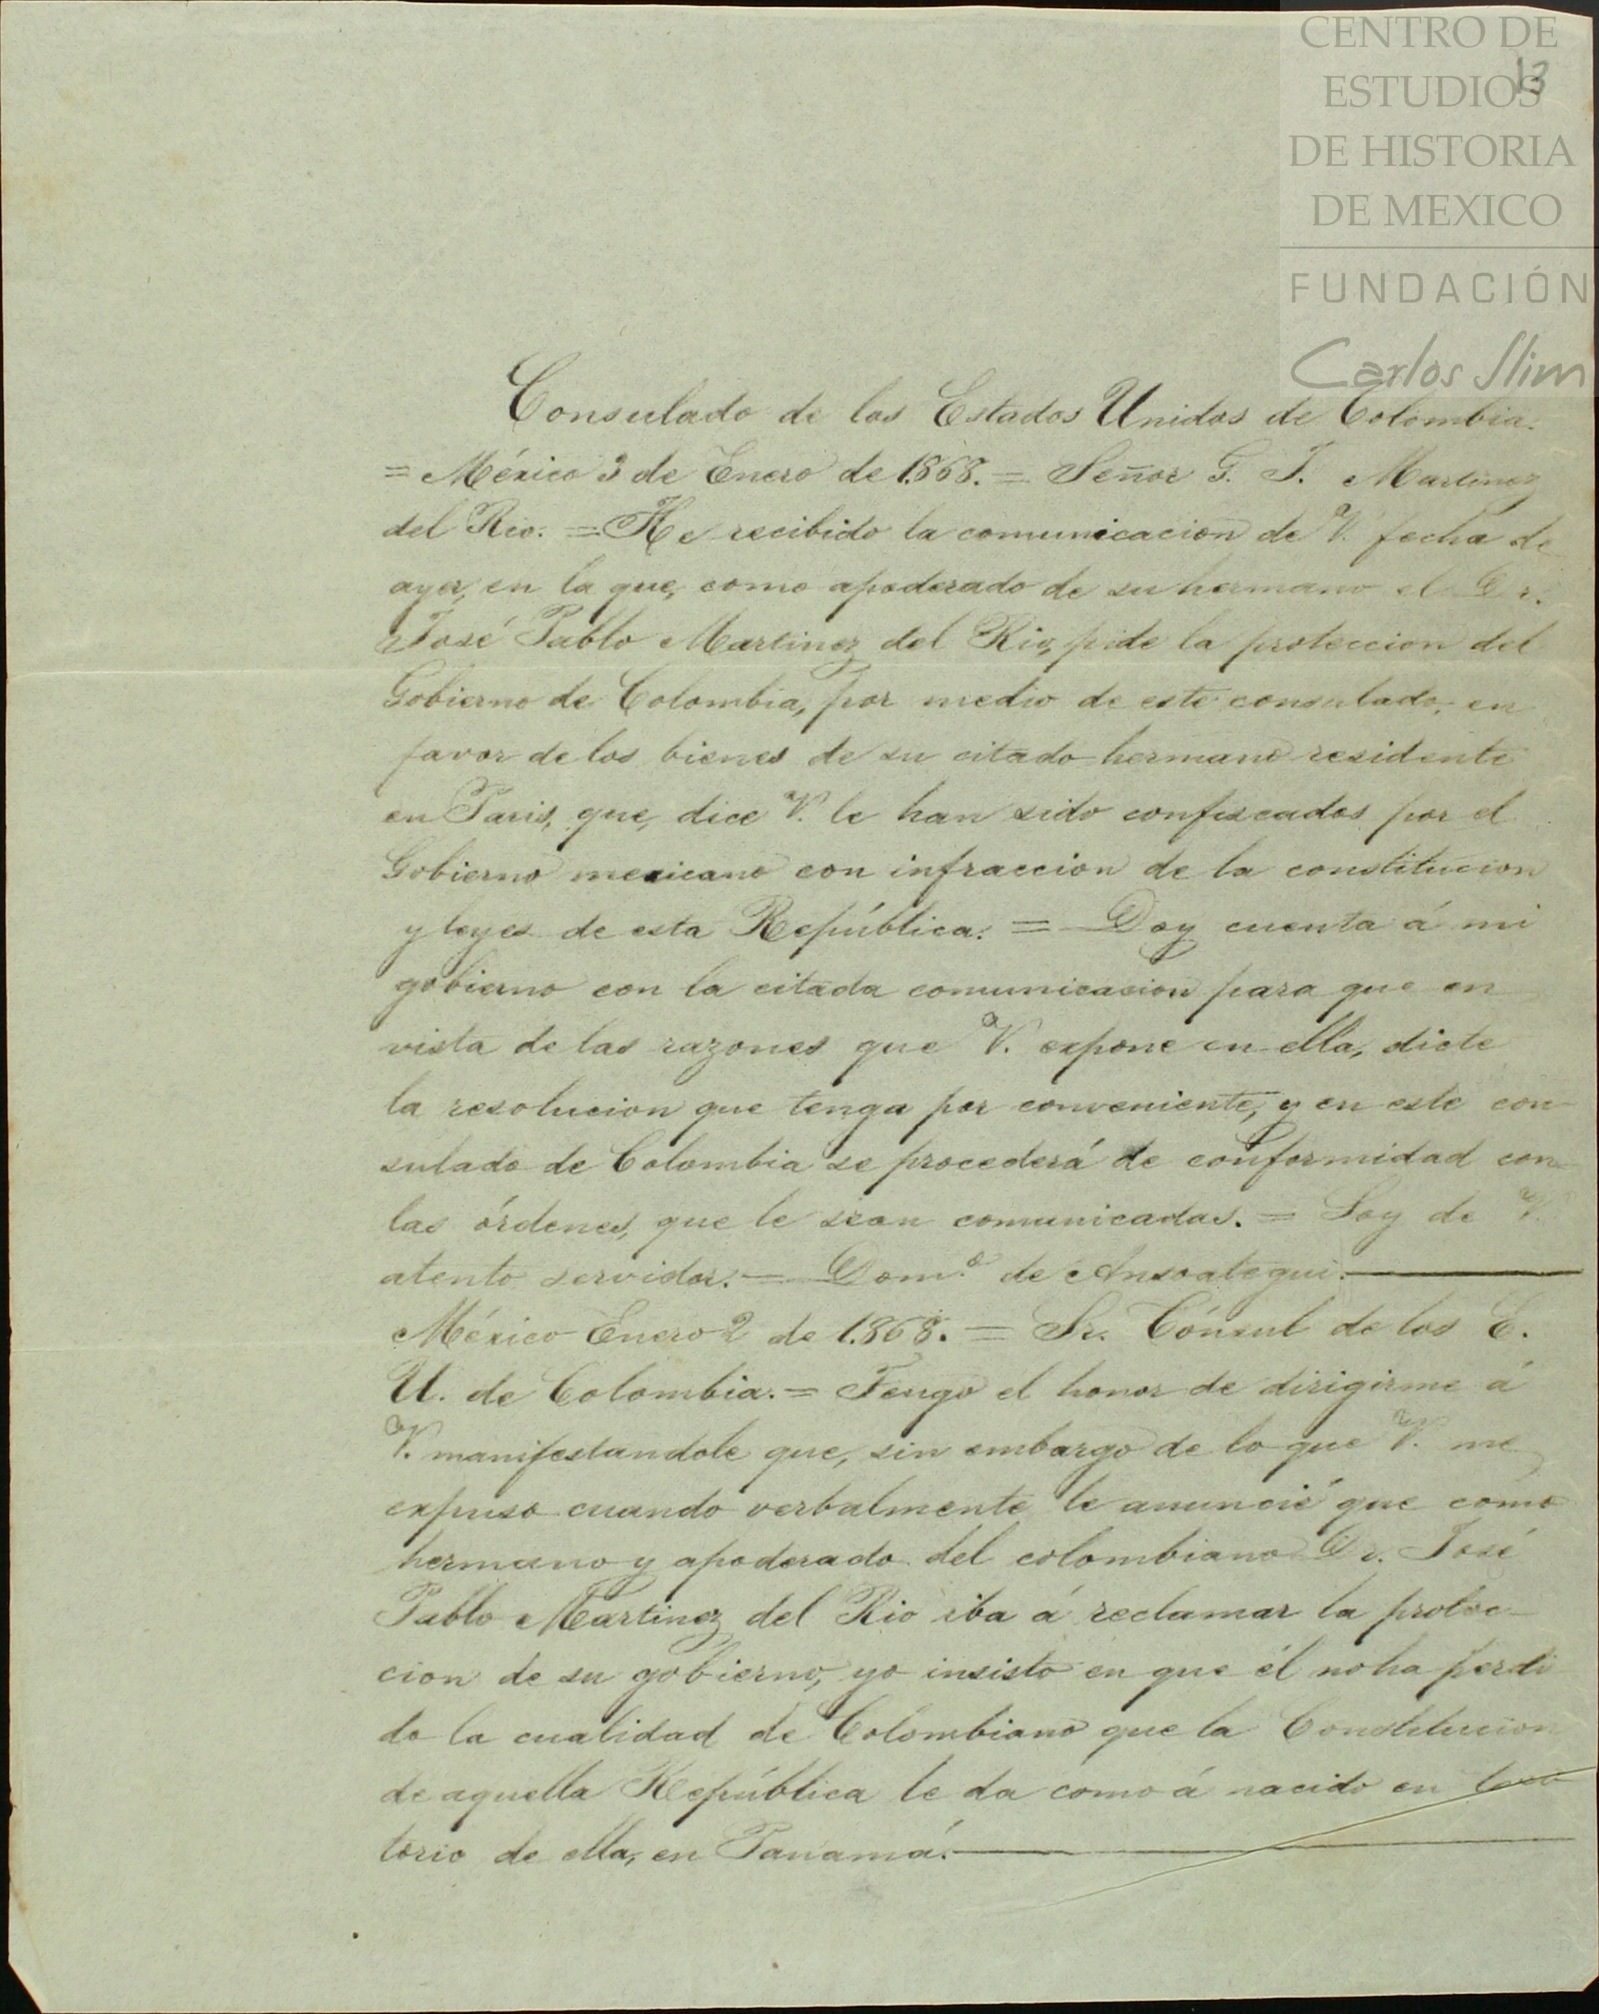 CENTRO DE
ESTUDIOS
DE HISTORIA
DE MEXICO
FUNDACIÓN
Carlos Slim
13
Consulado de los Estados Unidos de Colombia.
= México 3 de Enero de 1.868. = Señor G. J. Martinez
del Rio. = He recibido la comunicacion de V. fecha de
ayer, en la que, como apoderado de su hermano el Dr.
José Pablo Martinez del Rio, pide la proteccion del
Gobierno de Colombia, por medio de este consulado, en
favor de los bienes de su citado hermano residente
en Paris, que, dice V. le han sido confiscados por el
Gobierno mexicano con infraccion de la constitucion
y leyes de esta República. = Doy cuenta á mi
gobierno con la citada comunicacion para que en
vista de las razones que V. expone en ella, dicte
la resolucion que tenga por conveniente, y en este con-
sulado de Colombia se procederá de conformidad con
las órdenes, que le sean comunicadas. = Soy de V.
atento servidor. = Dom.º de Ansoategui.
México Enero 2 de 1.868. = Sr. Cónsul de los E.
U. de Colombia. = Tengo el honor de dirigirme á
V. manifestandole que, sin embargo de lo que V. me
expuso cuando verbalmente le anuncié que como
hermano y apoderado del colombiano Dr. José
Pablo Martinez del Rio iba á reclamar la protec-
cion de su gobierno, yo insisto en que él no ha perdi
do la cualidad de Colombiano que la Constitucion
de aquella República le da como á nacido en terri
torio de ella, en Panamá.